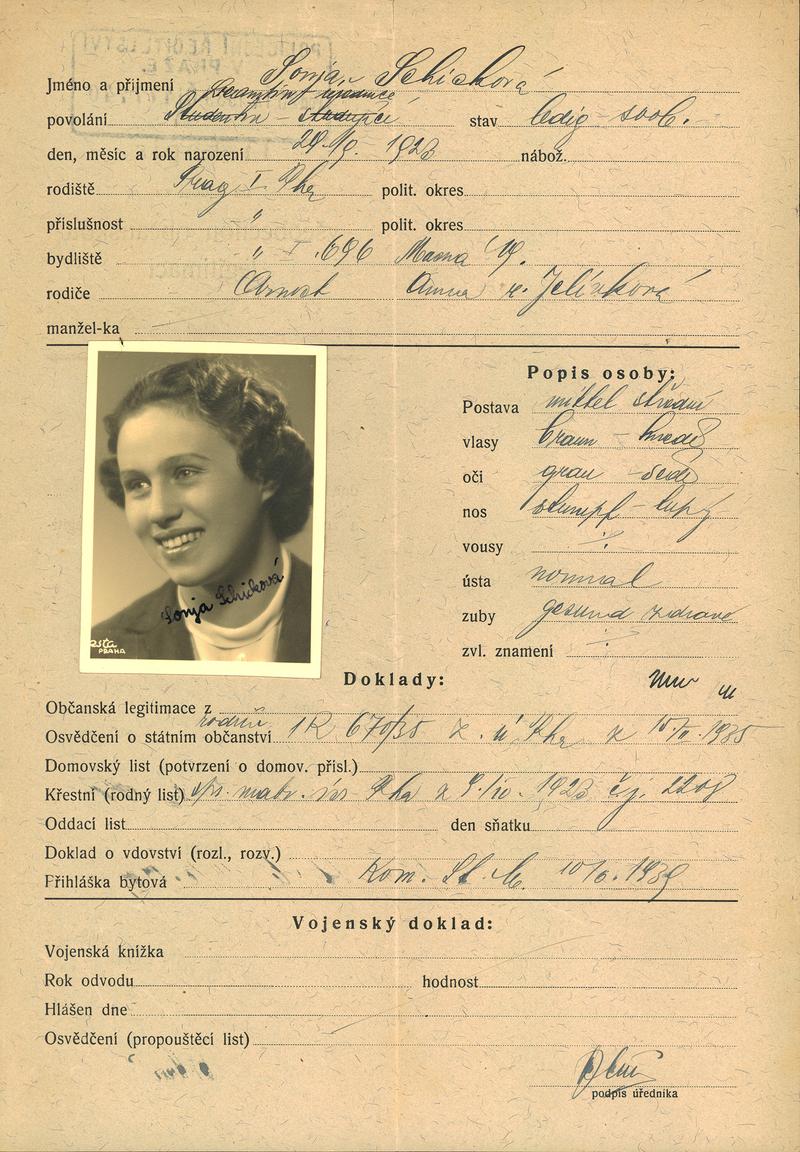 POLICEJNÍ ŘEDITELSTVÍ
V PRAZE.
Jméno a přijmení Sonja Schicková
povolání Studentin - studující stav ledig - svob.
den, měsíc a rok narození 1923 nábož.
rodiště Prag I. Pha polit. okres
příslušnost " polit. okres
bydliště " I. 696 Masná 19.
rodiče Arnošt Anna r. Jelínková
manžel-ka
Popis osoby:
Postava mittel střední
vlasy braun - hnedé
oči grau - šedé
nos stumpf - tupý
vousy
ústa normal
zuby gesund zdravé
zvl. znamení
Sonja Schicková
PRAHA
Doklady:
Občanská legitimace z
rodičů
Osvědčení o státním občanství 1R 670/35 z. ú. Pha z 1935
Domovský list (potvrzení o domov. přísl.)
Křestní (rodný list) matr. Pha z 1923 čj. 2208
Oddací list den sňatku
Doklad o vdovství (rozl., rozv.)
Přihláška bytová Kom. St. M. 10/6. 1939
Vojenský doklad:
Vojenská knížka
Rok odvodu hodnost
Hlášen dne
Osvědčení (propouštěcí list)
podpis úředníka